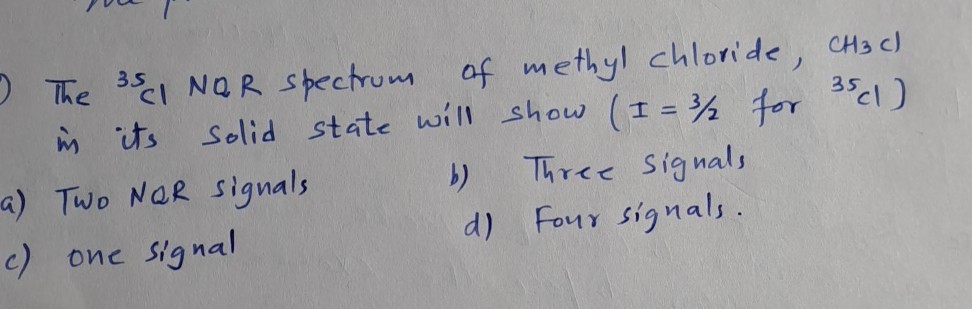 ) The ³⁵Cl NQR spectrum of methyl chloride, CH3 Cl
in its Solid state will show (I = 3/2 for ³⁵Cl)
a) Two NQR signals b) Three signals
c) one signal d) Four signals.